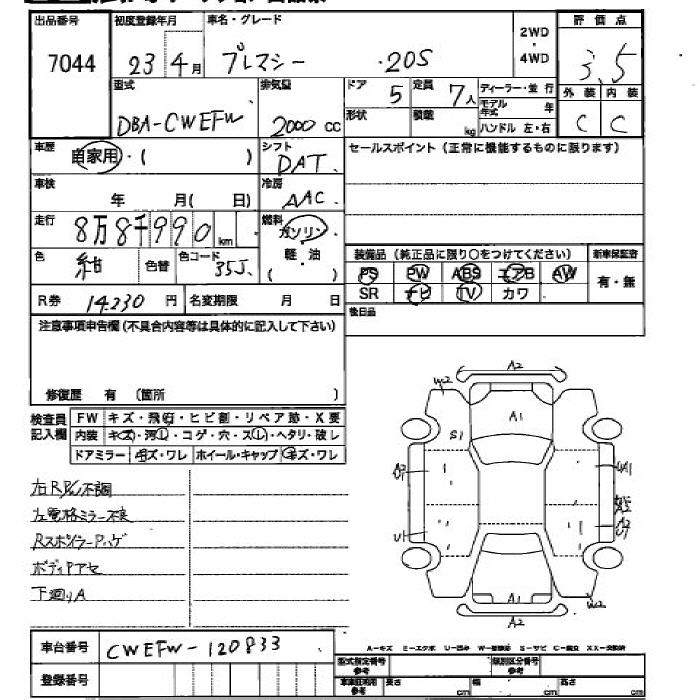 出品番号 初度登録年月 車名・グレード 2WD・4WD 評価点
7044 23年4月 プレマシー ・20S 3.5
型式 排気量 ドア 定員 ディーラー・並行 外装 内装
DBA-CWEFW 2000cc 5 7人 モデル年式 年 C C
形状 積載 kg ハンドル 左・右
車歴 自家用・( ) シフト DAT セールスポイント(正常に機能するものに限ります)
車検 年 月( 日) 冷房 AAC
走行 8万8千990km 燃料 ガソリン
色 紺 色替 色コード 35J 軽・油 ( )
装備品(純正品に限り○をつけてください) 新車保証書
PS PW ABS エアB AW 有・無
SR ナビ TV カワ
R券 14,230円 名変期限 月 日
後日品
注意事項申告欄(不具合内容等は具体的に記入して下さい)
修復歴 有 (箇所 )
検査員記入欄 FW キズ・飛石・ヒビ割・リペア跡・X要
内装 キズ・汚レ・コゲ・穴・スレ・ヘタリ・破レ
ドアミラー キズ・ワレ ホイール・キャップ キズ・ワレ
不調
左電格ミラー不良
RスポイラーPハゲ
ボディPアセ
下廻りA
A2
W2
A1
S1
U1
A2
A2
W2
車台番号 CWEFW-120833
A-キズ E-エクボ U-凹み W-補修跡 S-サビ C-腐食 XX-交換済
登録番号
型式指定番号 参考 類別区分番号 参考
車庫証明用 参考 長さ cm 幅 cm 高さ cm